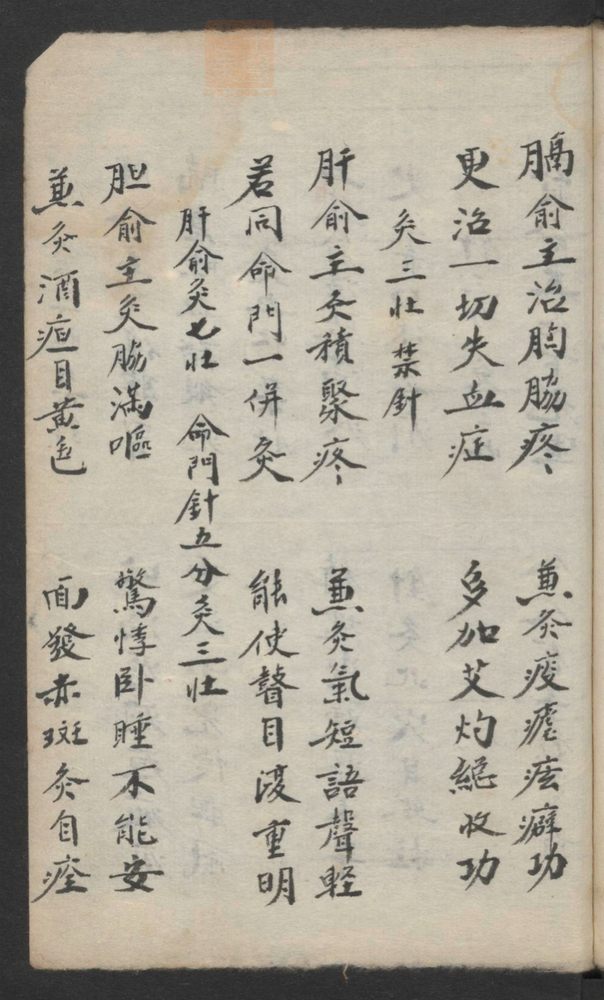 膈俞主治胸脇疼 兼灸痰瘧痃癖功
更治一切失血症 多加艾灼總收功
灸三壯 禁針
肝俞主灸積聚疼 兼灸氣短語聲輕
若同命門一併灸 能使瞽目復重明
肝俞灸七壯 命門針五分灸三壯
胆俞主灸脇滿嘔 驚悸卧睡不能安
兼灸酒疸目黃色 面發赤斑灸自痊